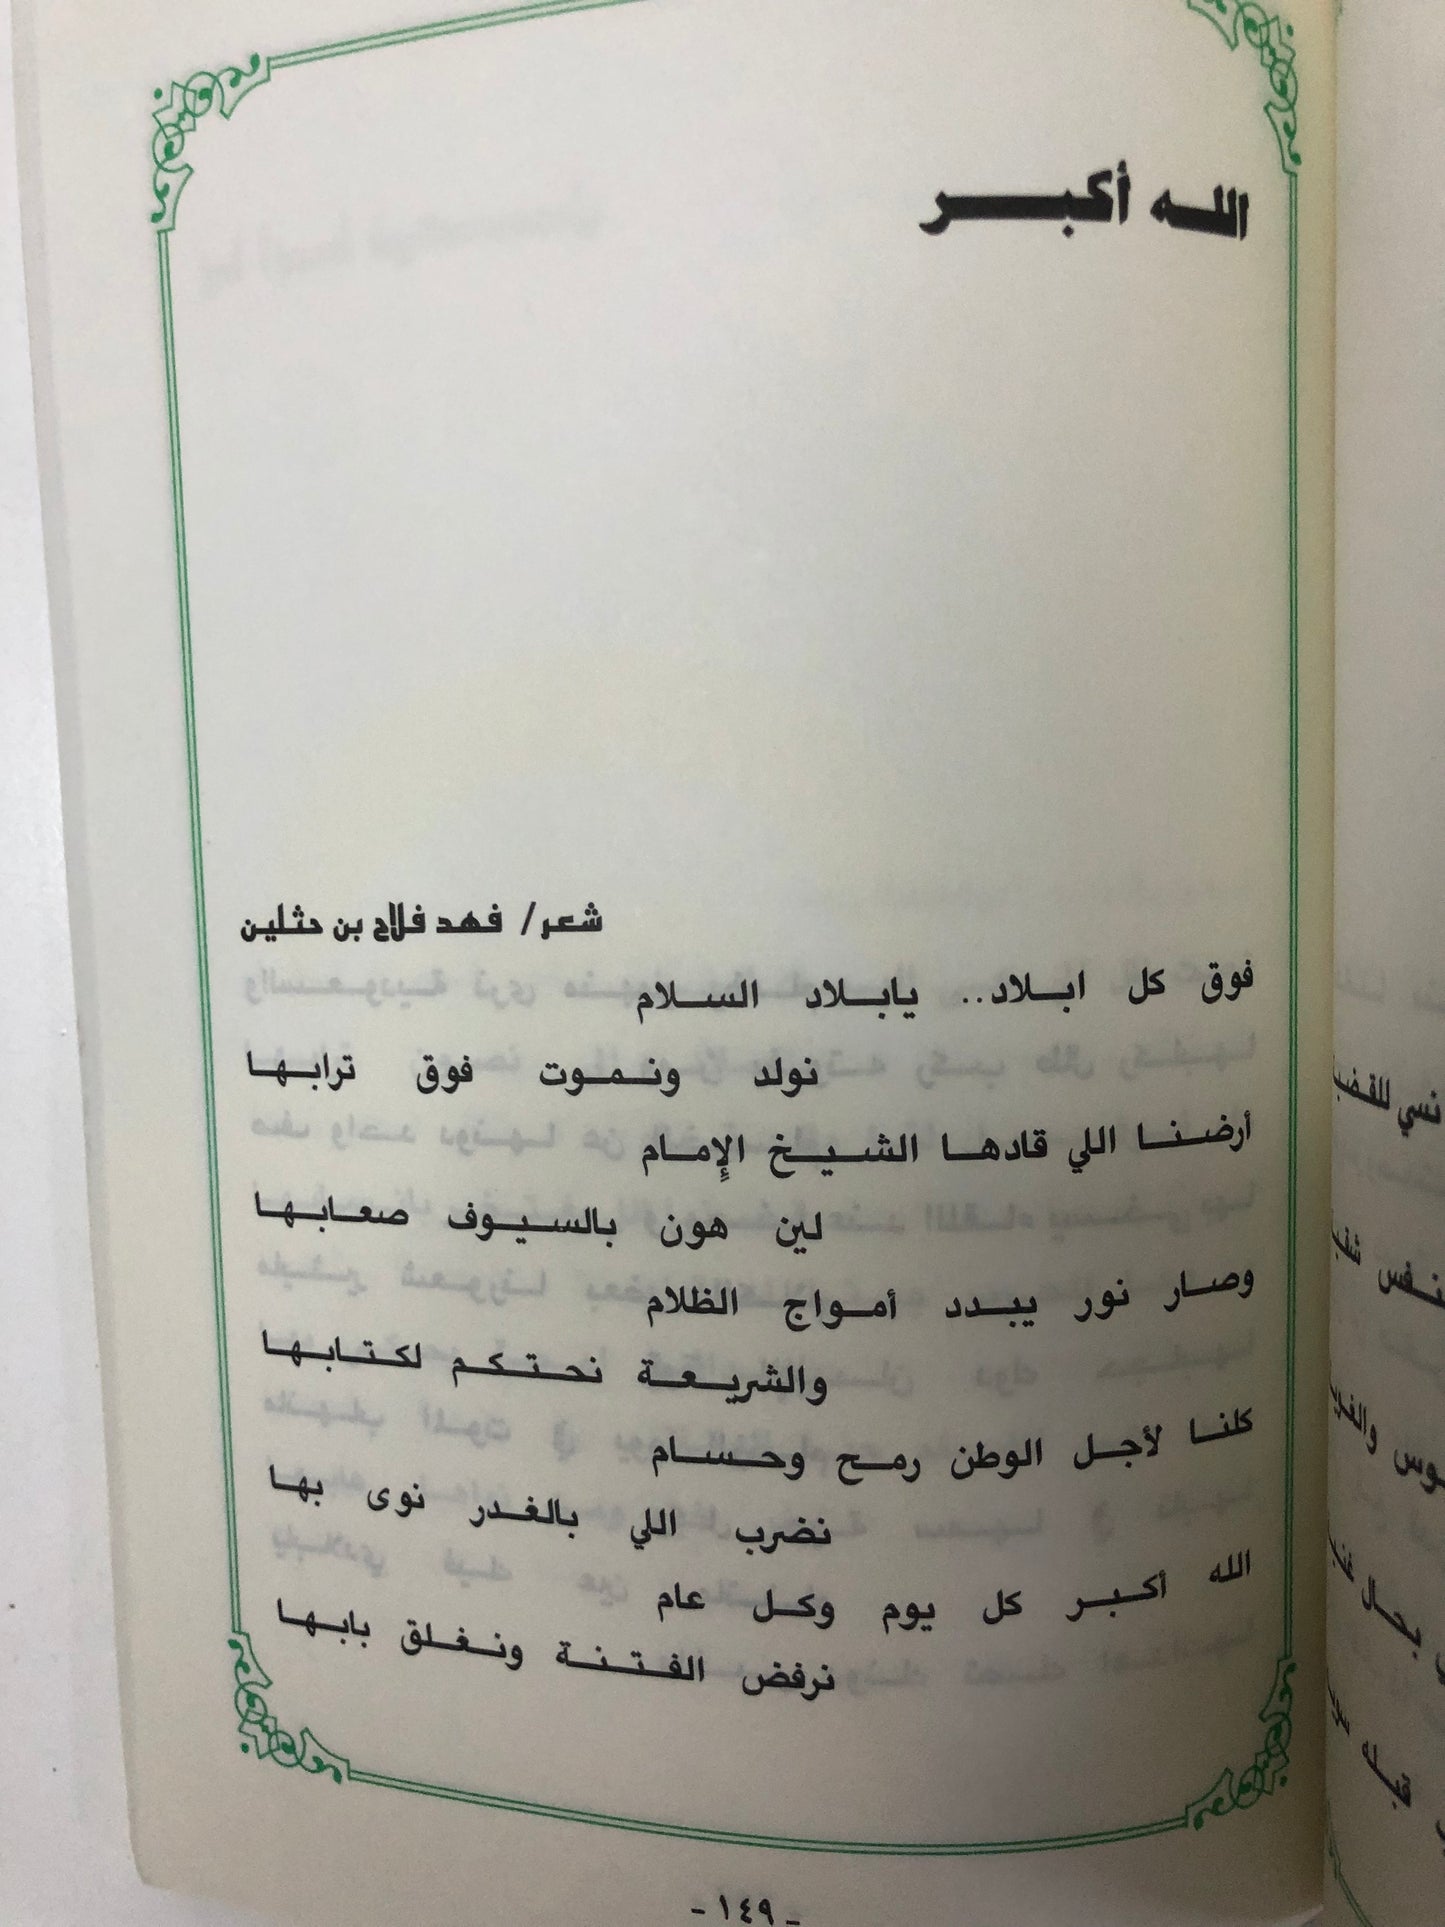 الله أكبر
شعر/ فهد فلاح بن حثلين
فوق كل ابلاد.. يابلاد السلام
نولد ونموت فوق ترابها
أرضنا اللي قادها الشيخ الإمام
لين هون بالسيوف صعابها
وصار نور يبدد أمواج الظلام
والشريعة نحتكم لكتابها
كلنا لأجل الوطن رمح وحسام
نضرب اللي بالغدر نوى بها
الله أكبر كل يوم وكل عام
نرفض الفتنة ونغلق بابها
- ١٤٩ -